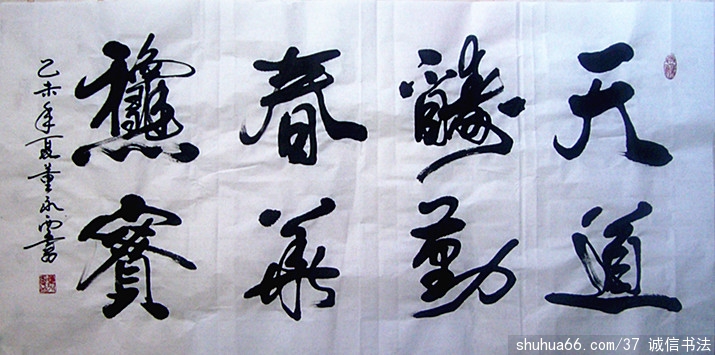 天道
醻勤
春華
龝實
乙未年夏董永書
shuhua66.com/37 诚信书法